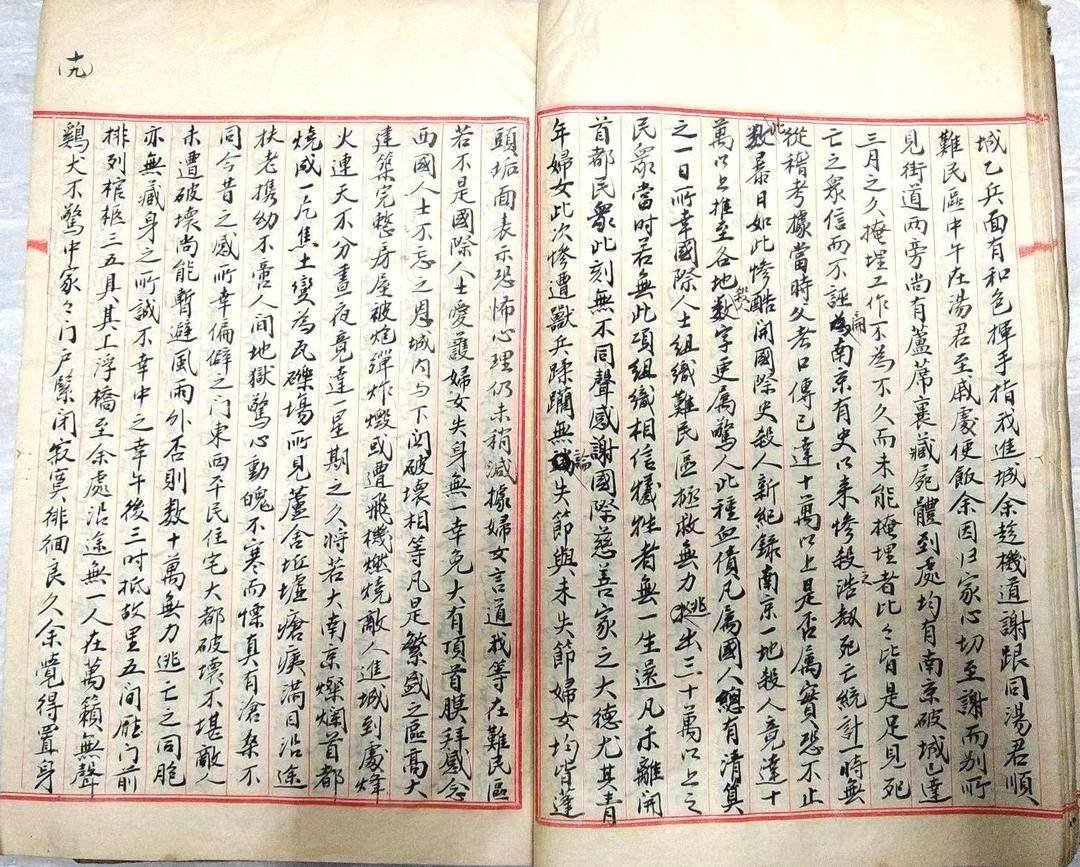 城乙兵面有和色揮手指我進城余趁機道謝跟同湯君順
難民區中午在湯君至戚處便飯余因归家心切至謝而别所
見街道兩旁尚有蘆蓆裹藏屍體到處均有南京破城已達
三月之久掩埋工作不為不久而未能掩埋者比々皆是足見死
亡之衆信而不誣南京有史以来惨殺浩劫死亡統計一時無
從稽考據當時父老口傳已達十萬以上是否属實恐不止
此数暴日如此惨酷開國際史殺人新紀録南京一地殺人竟達十
萬以上推至各地数字更属驚人此種血債凡属國人總有清算
之一日所幸國際人士組織難民區極救無力逃出二十萬以上之
民衆當时若無此項組織相信犧牲者無一生還凡未離開
首都民衆此刻無不同聲感謝國際慈善家之大德尤其青
年婦女此次惨遭獸兵蹂躪無論失節與未失節婦女均皆蓬
十九
頭垢面表示恐怖心理仍未稍減據婦女言道我等在難民區
若不是國際人士愛護婦女失身無一幸免大有頂首膜拜感念
西國人士不忘之恩城内与下関破壞相等凡是繁盛之區高大
建築完整房屋被炮彈炸燬或遭飛機燃燒敵人進城到處烽
火連天不分晝夜竟達一星期之久将若大南京燦爛首都
燒成一片焦土變為瓦礫塲所見蘆舍坵墟瘡痍滿目沿途
扶老携幼不啻人間地獄驚心動魄不寒而慄真有滄桑不
同今昔之感所幸偏僻之门東西平民住宅大都破壞不堪敵人
未遭破壞尚能暫避風雨外否則数十萬無力逃亡之同胞
亦無藏身之所誠不幸中之幸午後三时抵故里五间廳门前
排列棺柩三五具其上浮橋至余處沿途無一人在萬籟無聲
鷄犬不驚中家々门户緊闭寂寞徘徊良久余覺得置身